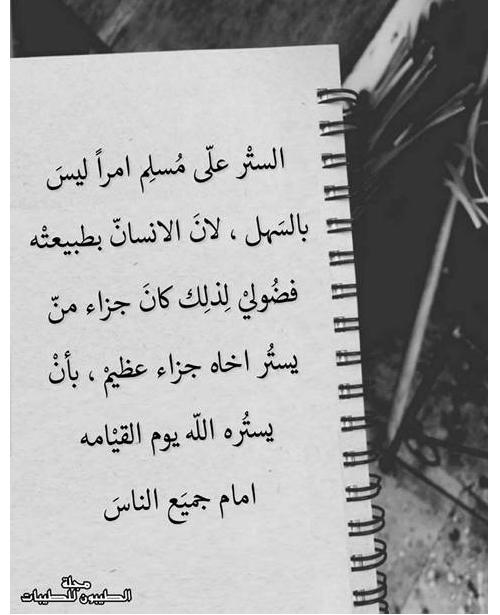 الستْر علّى مُسلِم امراً ليسَ
بالسَهل ، لانَ الانسانّ بطبيعتْه
فضُوليْ لِذلِك كانَ جزاء منّ
يستُر اخاه جزاء عظيمْ ، بأنْ
يستُره اللّه يوم القيْامه
امام جميَع الناسَ
مجلة
الطيبون للطيبات